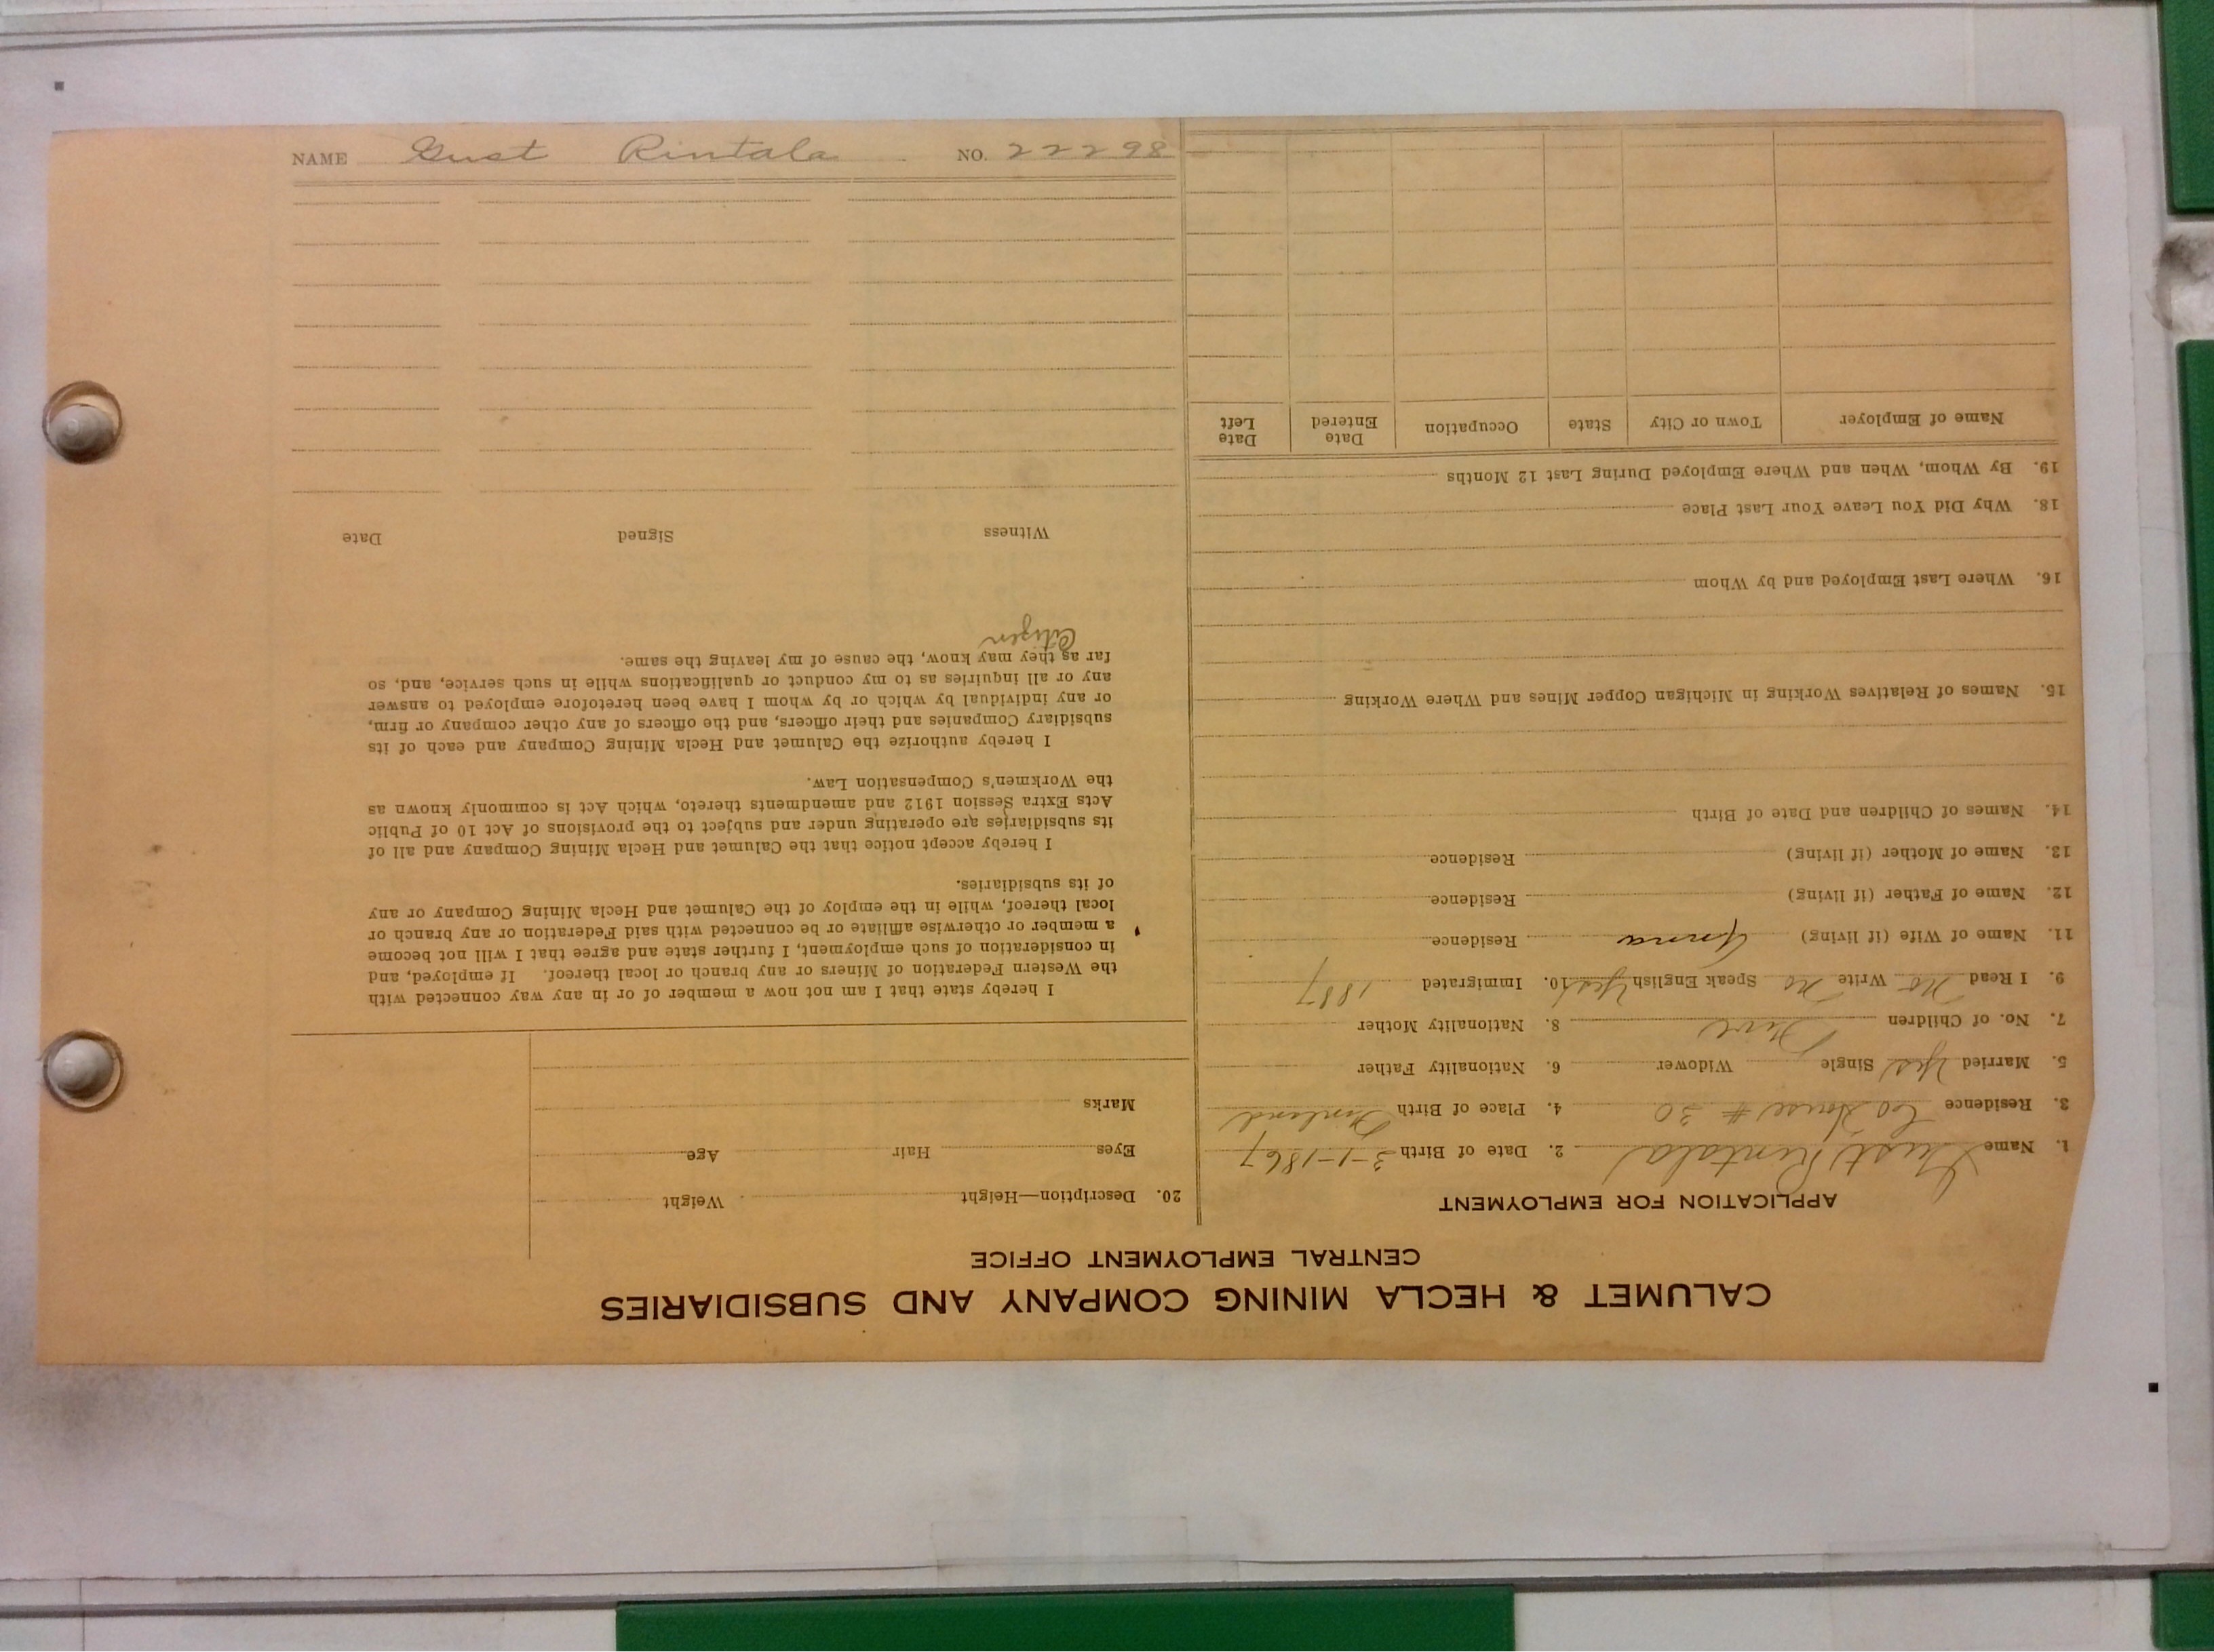 CALUMET & HECLA MINING COMPANY AND SUBSIDIARIES
CENTRAL EMPLOYMENT OFFICE
APPLICATION FOR EMPLOYMENT
1. Name Gust Rintala 2. Date of Birth 3-1-1867
3. Residence Co House # 30 4. Place of Birth Finland
5. Married Yes Single Widower 6. Nationality Father
7. No. of Children Five 8. Nationality Mother
9. I Read No Write No Speak English Yes 10. Immigrated 1887
11. Name of Wife (if living) Anna Residence
12. Name of Father (if living) Residence
13. Name of Mother (if living) Residence
14. Names of Children and Date of Birth
15. Names of Relatives Working in Michigan Copper Mines and Where Working
16. Where Last Employed and by Whom
18. Why Did You Leave Your Last Place
19. By Whom, When and Where Employed During Last 12 Months
Name of Employer Town or City State Occupation Date Entered Date Left
20. Description—Height Weight
Eyes Hair Age
Marks
I hereby state that I am not now a member of or in any way connected with
the Western Federation of Miners or any branch or local thereof. If employed, and
in consideration of such employment, I further state and agree that I will not become
a member or otherwise affiliate or be connected with said Federation or any branch or
local thereof, while in the employ of the Calumet and Hecla Mining Company or any
of its subsidiaries.
I hereby accept notice that the Calumet and Hecla Mining Company and all of
its subsidiaries are operating under and subject to the provisions of Act 10 of Public
Acts Extra Session 1912 and amendments thereto, which Act is commonly known as
the Workmen's Compensation Law.
I hereby authorize the Calumet and Hecla Mining Company and each of its
subsidiary Companies and their officers, and the officers of any other company or firm,
or any individual by which or by whom I have been heretofore employed to answer
any or all inquiries as to my conduct or qualifications while in such service, and, so
far as they may know, the cause of my leaving the same.
Citizen
Witness Signed Date
NAME Gust Rintala NO. 22298